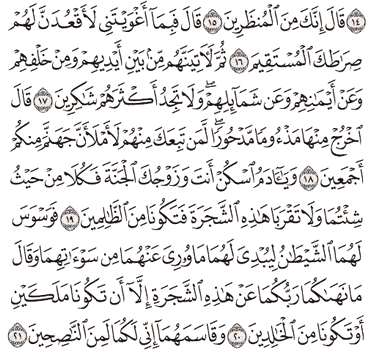 ١٤ قَالَ إِنَّكَ مِنَ ٱلْمُنظَرِينَ ١٥ قَالَ فَبِمَآ أَغْوَيْتَنِى لَأَقْعُدَنَّ لَهُمْ
صِرَٰطَكَ ٱلْمُسْتَقِيمَ ١٦ ثُمَّ لَـَٔاتِيَنَّهُم مِّنۢ بَيْنِ أَيْدِيهِمْ وَمِنْ خَلْفِهِمْ
وَعَنْ أَيْمَٰنِهِمْ وَعَن شَمَآئِلِهِمْ ۖ وَلَا تَجِدُ أَكْثَرَهُمْ شَٰكِرِينَ ١٧ قَالَ
ٱخْرُجْ مِنْهَا مَذْءُومًا مَّدْحُورًا ۖ لَّمَن تَبِعَكَ مِنْهُمْ لَأَمْلَأَنَّ جَهَنَّمَ مِنكُمْ
أَجْمَعِينَ ١٨ وَيَٰٓـَٔادَمُ ٱسْكُنْ أَنتَ وَزَوْجُكَ ٱلْجَنَّةَ فَكُلَا مِنْ حَيْثُ
شِئْتُمَا وَلَا تَقْرَبَا هَٰذِهِ ٱلشَّجَرَةَ فَتَكُونَا مِنَ ٱلظَّٰلِمِينَ ١٩ فَوَسْوَسَ
لَهُمَا ٱلشَّيْطَٰنُ لِيُبْدِىَ لَهُمَا مَا وُۥرِىَ عَنْهُمَا مِن سَوْءَٰتِهِمَا وَقَالَ
مَا نَهَىٰكُمَا رَبُّكُمَا عَنْ هَٰذِهِ ٱلشَّجَرَةِ إِلَّآ أَن تَكُونَا مَلَكَيْنِ
أَوْ تَكُونَا مِنَ ٱلْخَٰلِدِينَ ٢٠ وَقَاسَمَهُمَآ إِنِّى لَكُمَا لَمِنَ ٱلنَّٰصِحِينَ ٢١